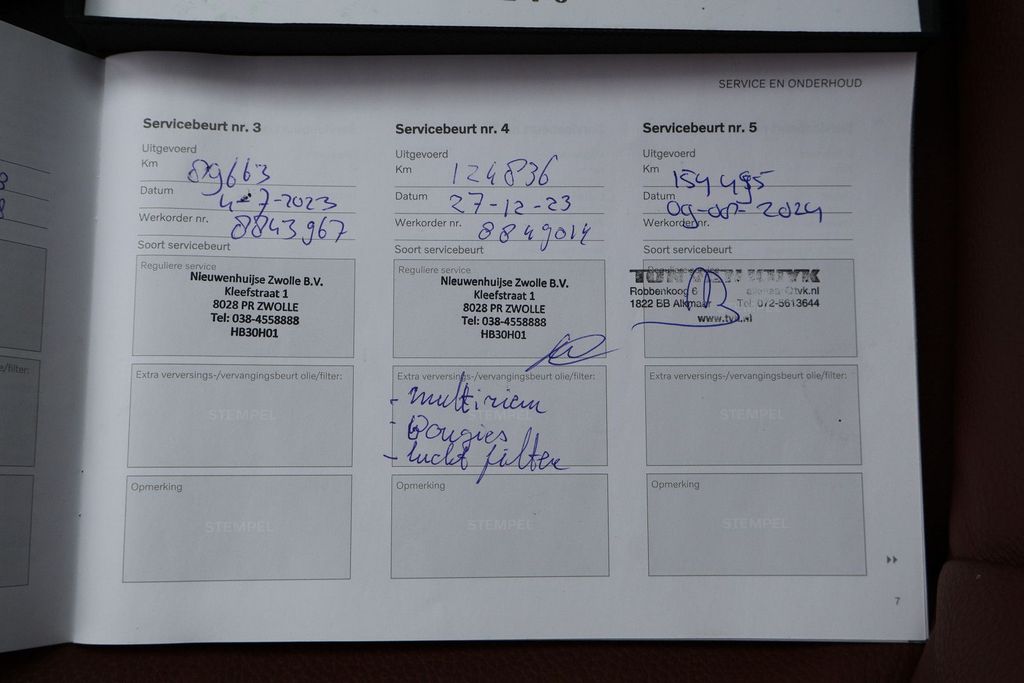 SERVICE EN ONDERHOUD
Servicebeurt nr. 3
Uitgevoerd
Km 89663
Datum 4-7-2023
Werkorder nr. 8843967
Soort servicebeurt
Reguliere service
Nieuwenhuijse Zwolle B.V.
Kleefstraat 1
8028 PR ZWOLLE
Tel: 038-4558888
HB30H01
Extra verversings-/vervangingsbeurt olie/filter:
STEMPEL
Opmerking
STEMPEL
Servicebeurt nr. 4
Uitgevoerd
Km 124836
Datum 27-12-23
Werkorder nr. 8849014
Soort servicebeurt
Reguliere service
Nieuwenhuijse Zwolle B.V.
Kleefstraat 1
8028 PR ZWOLLE
Tel: 038-4558888
HB30H01
Extra verversings-/vervangingsbeurt olie/filter:
- multiriem
- Bougies
- lucht filter
Opmerking
STEMPEL
Servicebeurt nr. 5
Uitgevoerd
Km 154495
Datum 2024
Werkorder nr.
Soort servicebeurt
Robbenkoog 6
1822 BB Alkmaar Tel: 072-5613644
Extra verversings-/vervangingsbeurt olie/filter:
STEMPEL
Opmerking
STEMPEL
7
e/filter: